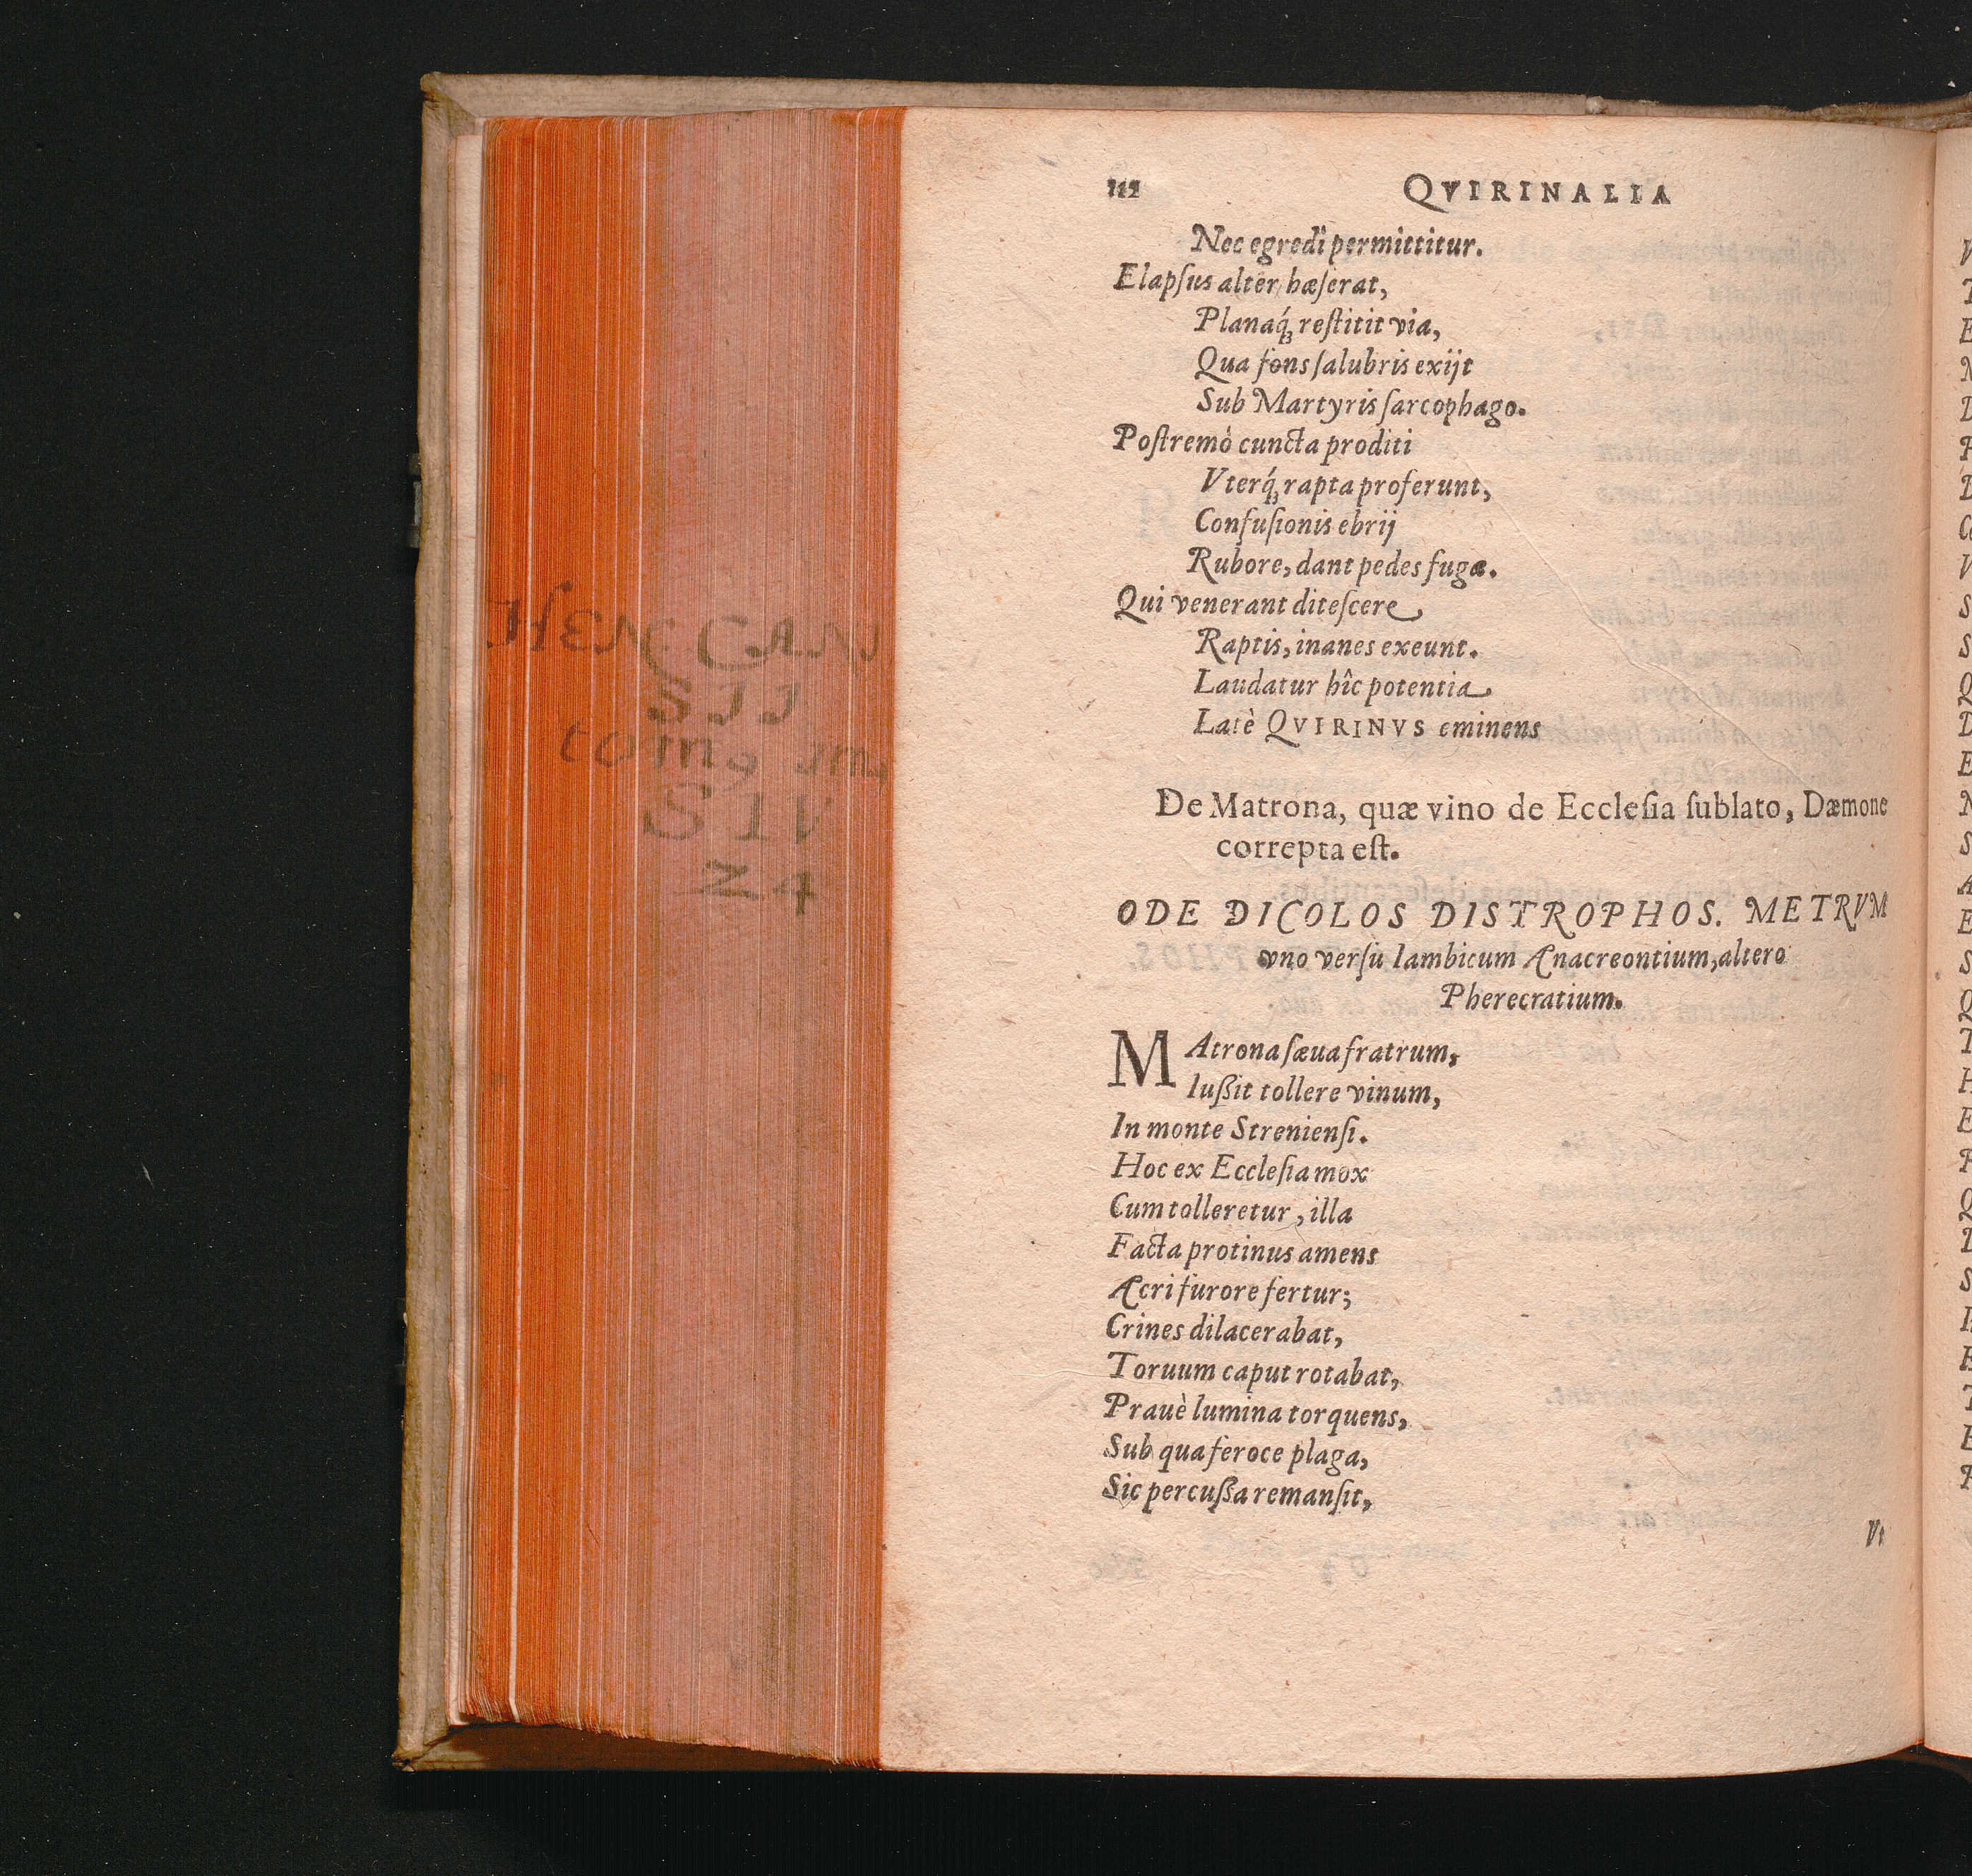 112 QVIRINALIA
Nec egredi permittitur.
Elapſus alter hæſerat,
Planaq́; reſtitit via,
Qua fons ſalubris exijt
Sub Martyris ſarcophago.
Poſtremò cuncta proditi
Vterq́; rapta proferunt,
Confuſionis ebrij
Rubore, dant pedes fugæ.
Qui venerant diteſcere
Raptis, inanes exeunt.
Laudatur hîc potentia
Latè QVIRINVS eminens
De Matrona, quæ vino de Eccleſia ſublato, Dæmone
correpta eſt.
ODE DICOLOS DISTROPHOS. METRVM
vno verſu Iambicum Anacreontium, altero
Pherecratium.
MAtrona ſæua fratrum,
Iuſſit tollere vinum,
In monte Strenienſi.
Hoc ex Eccleſia mox
Cum tolleretur, illa
Facta protinus amens
Acri furore fertur;
Crines dilacerabat,
Toruum caput rotabat,
Prauè lumina torquens,
Sub qua feroce plaga,
Sic percuſſa remanſit,
Vt